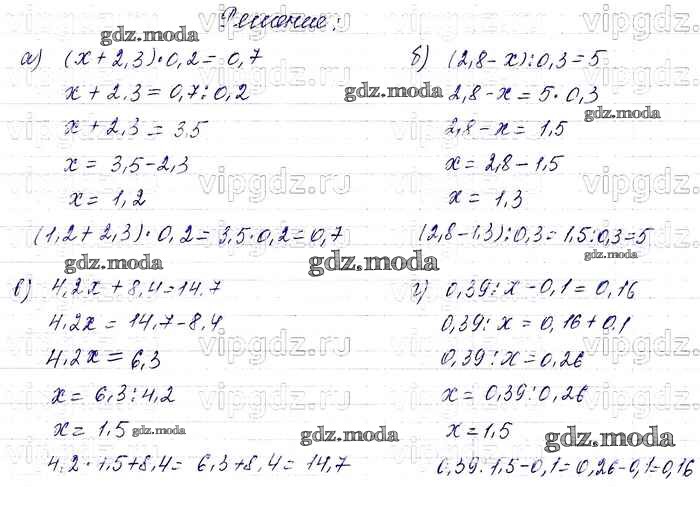 Решение:
а) (x+2,3)·0,2=0,7
x+2,3=0,7:0,2
x+2,3=3,5
x=3,5-2,3
x=1,2
(1,2+2,3)·0,2=3,5·0,2=0,7
б) (2,8-x):0,3=5
2,8-x=5·0,3
2,8-x=1,5
x=2,8-1,5
x=1,3
(2,8-1,3):0,3=1,5:0,3=5
в) 4,2x+8,4=14,7
4,2x=14,7-8,4
4,2x=6,3
x=6,3:4,2
x=1,5
4,2·1,5+8,4=6,3+8,4=14,7
г) 0,39:x-0,1=0,16
0,39:x=0,16+0,1
0,39:x=0,26
x=0,39:0,26
x=1,5
0,39:1,5-0,1=0,26-0,1=0,16
gdz.moda
gdz.moda
gdz.moda
gdz.moda
gdz.moda
gdz.moda
gdz.moda
gdz.moda
gdz.moda
vipgdz.ru
vipgdz.ru
vipgdz.ru
vipgdz.ru